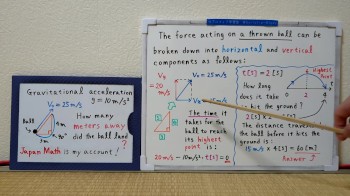 Gravitational acceleration
V₀ = 25 m/s
g = 10 m/s²
ball
5m
3m
4m
90°
How many
meters away
did the ball land?
Japan Math is my account!
The force acting on a thrown ball can be
broken down into horizontal and vertical
components as follows:
Vy
= 20
m/s
V₀ = 25 m/s
The time it
takes for the
ball to reach
its highest
point is:
20 m/s - 10 m/s² · t[s] = 0
t[s] = 2[s]
Highest
point
How long
does it take
to hit the ground?
The distance traveled
the ball before it hits the
ground is:
15 m/s × 4[s] = 60[m]
Answer